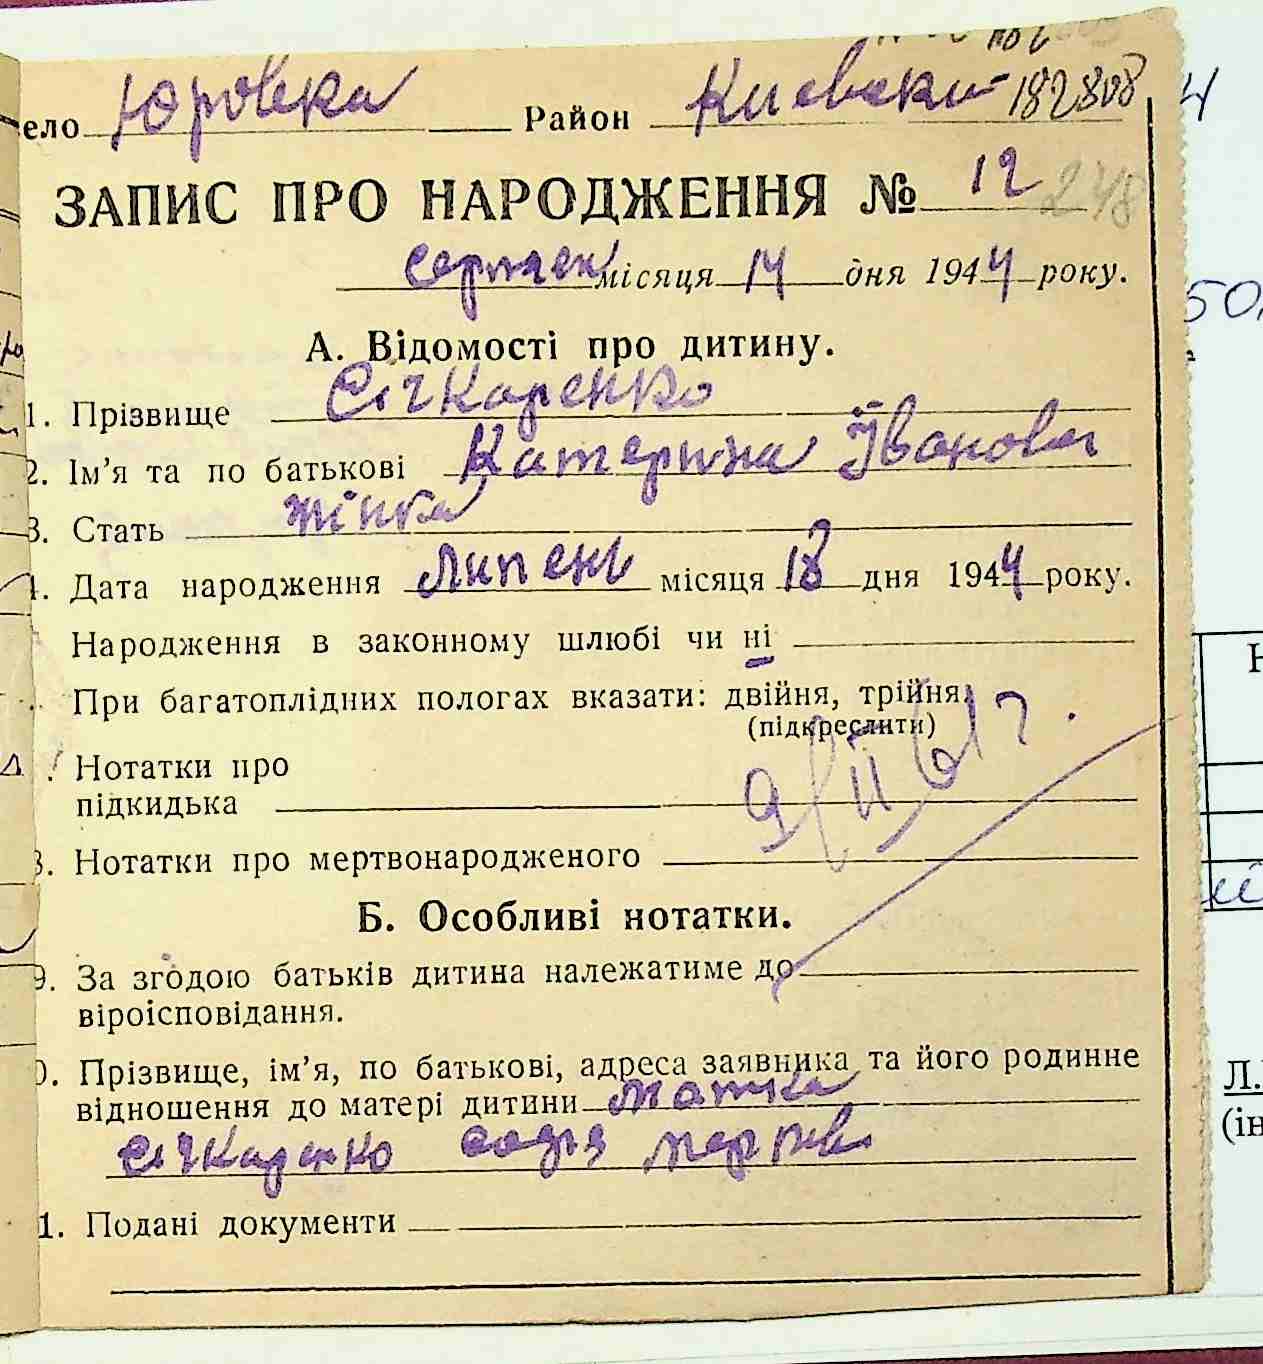 село Юровка Район Киевски 182808
ЗАПИС ПРО НАРОДЖЕННЯ № 12 248
серпень місяця 14 дня 1944 року.
А. Відомості про дитину.
1. Прізвище Січкаренко
2. Ім’я та по батькові Катерина Іванова
3. Стать жінка
4. Дата народження липень місяця 18 дня 1944 року.
Народження в законному шлюбі чи ні
При багатоплідних пологах вказати: двійня, трійня
(підкреслити)
Нотатки про
підкидька
8. Нотатки про мертвонародженого
Б. Особливі нотатки.
9. За згодою батьків дитина належатиме до
віроісповідання.
0. Прізвище, ім’я, по батькові, адреса заявника та його родинне
відношення до матері дитини матка
Січкаренко Софія
1. Подані документи